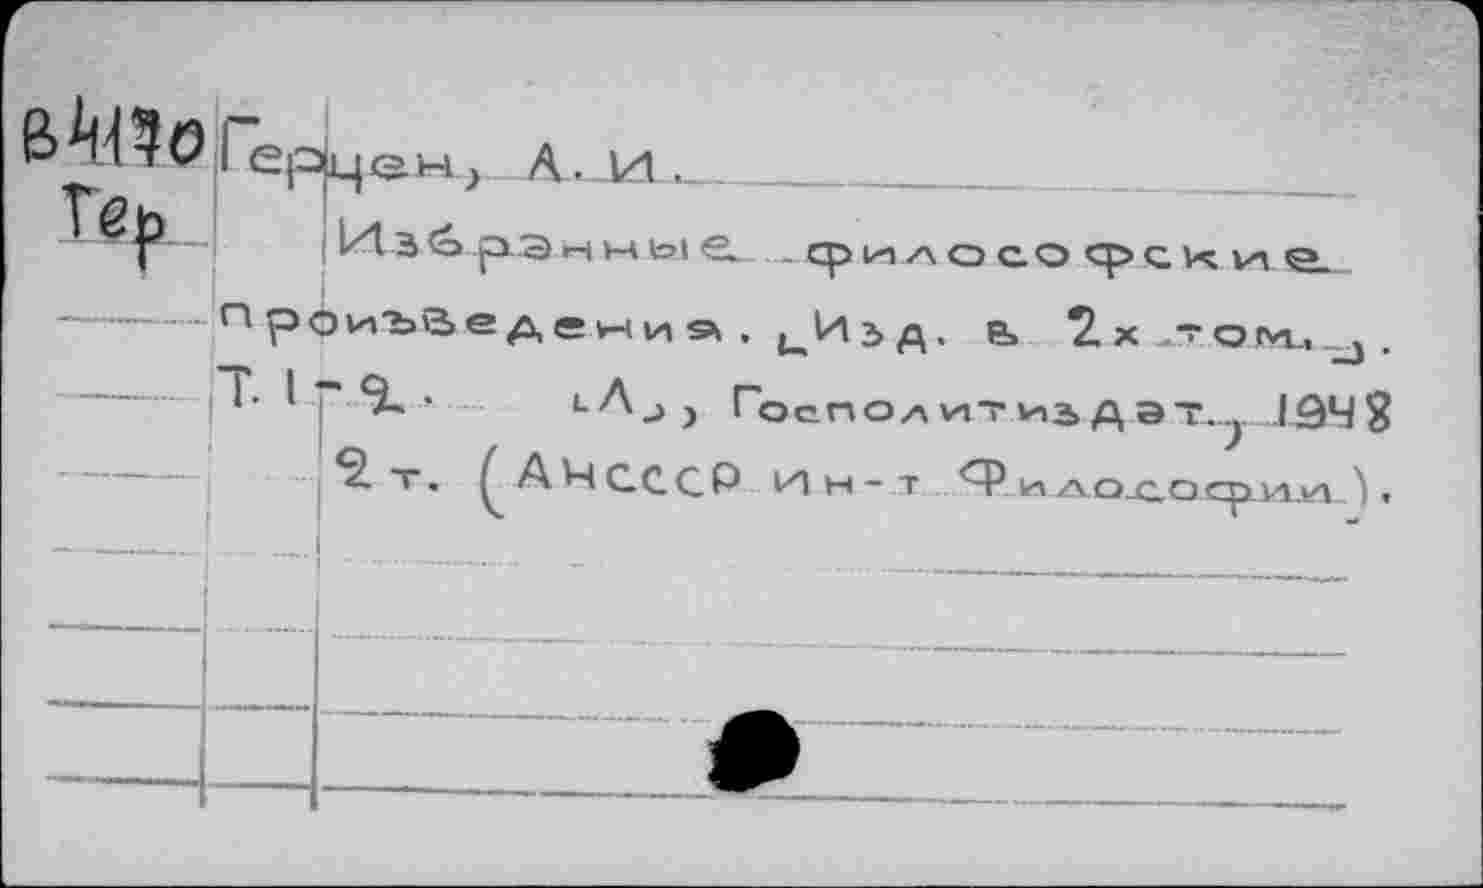 В4170 Герцен, А. И.
Гер Избранные философские
произведения. [Изд. в 2х том.].
Т. 1-2. [Л], Госполитиздат., 1948
2 т. (АНСССР Ин-т Философии).